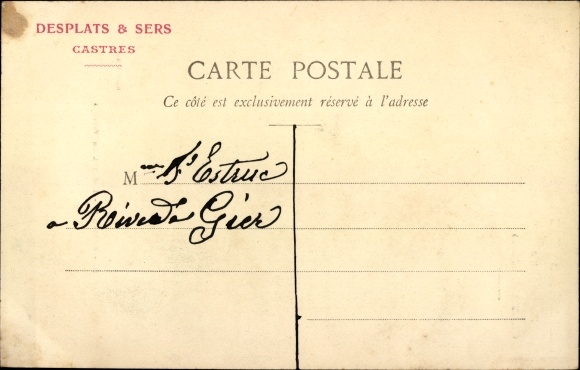 DESPLATS & SERS
CASTRES
CARTE POSTALE
Ce côté est exclusivement réservé à l'adresse
Mme Estruc
a Rive de Gier